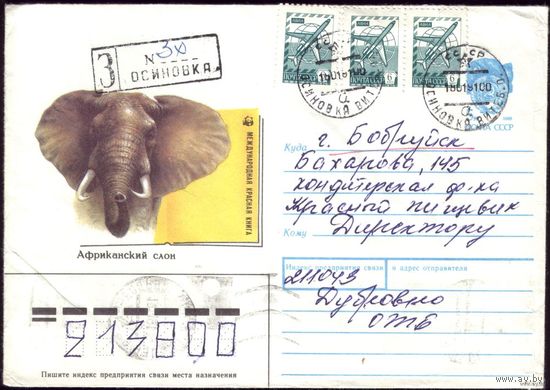 З
№ 30
ОСИНОВКА
МЕЖДУНАРОДНАЯ КРАСНАЯ КНИГА
Африканский слон
СССР
ОСИНОВКА ВИТЕБ. О
18019100
а
СССР
ОСИНОВКА ВИТЕБ. О
18019100
а
ПОЧТА СССР
Куда
г. Бобруйск
Бахарова, 145
кондитерская ф-ка
Красный пищевик
Кому
Директору
Индекс предприятия связи и адрес отправителя
211043
Дубровно
ОЖБ
213800
Пишите индекс предприятия связи места назначения
www.ay.by